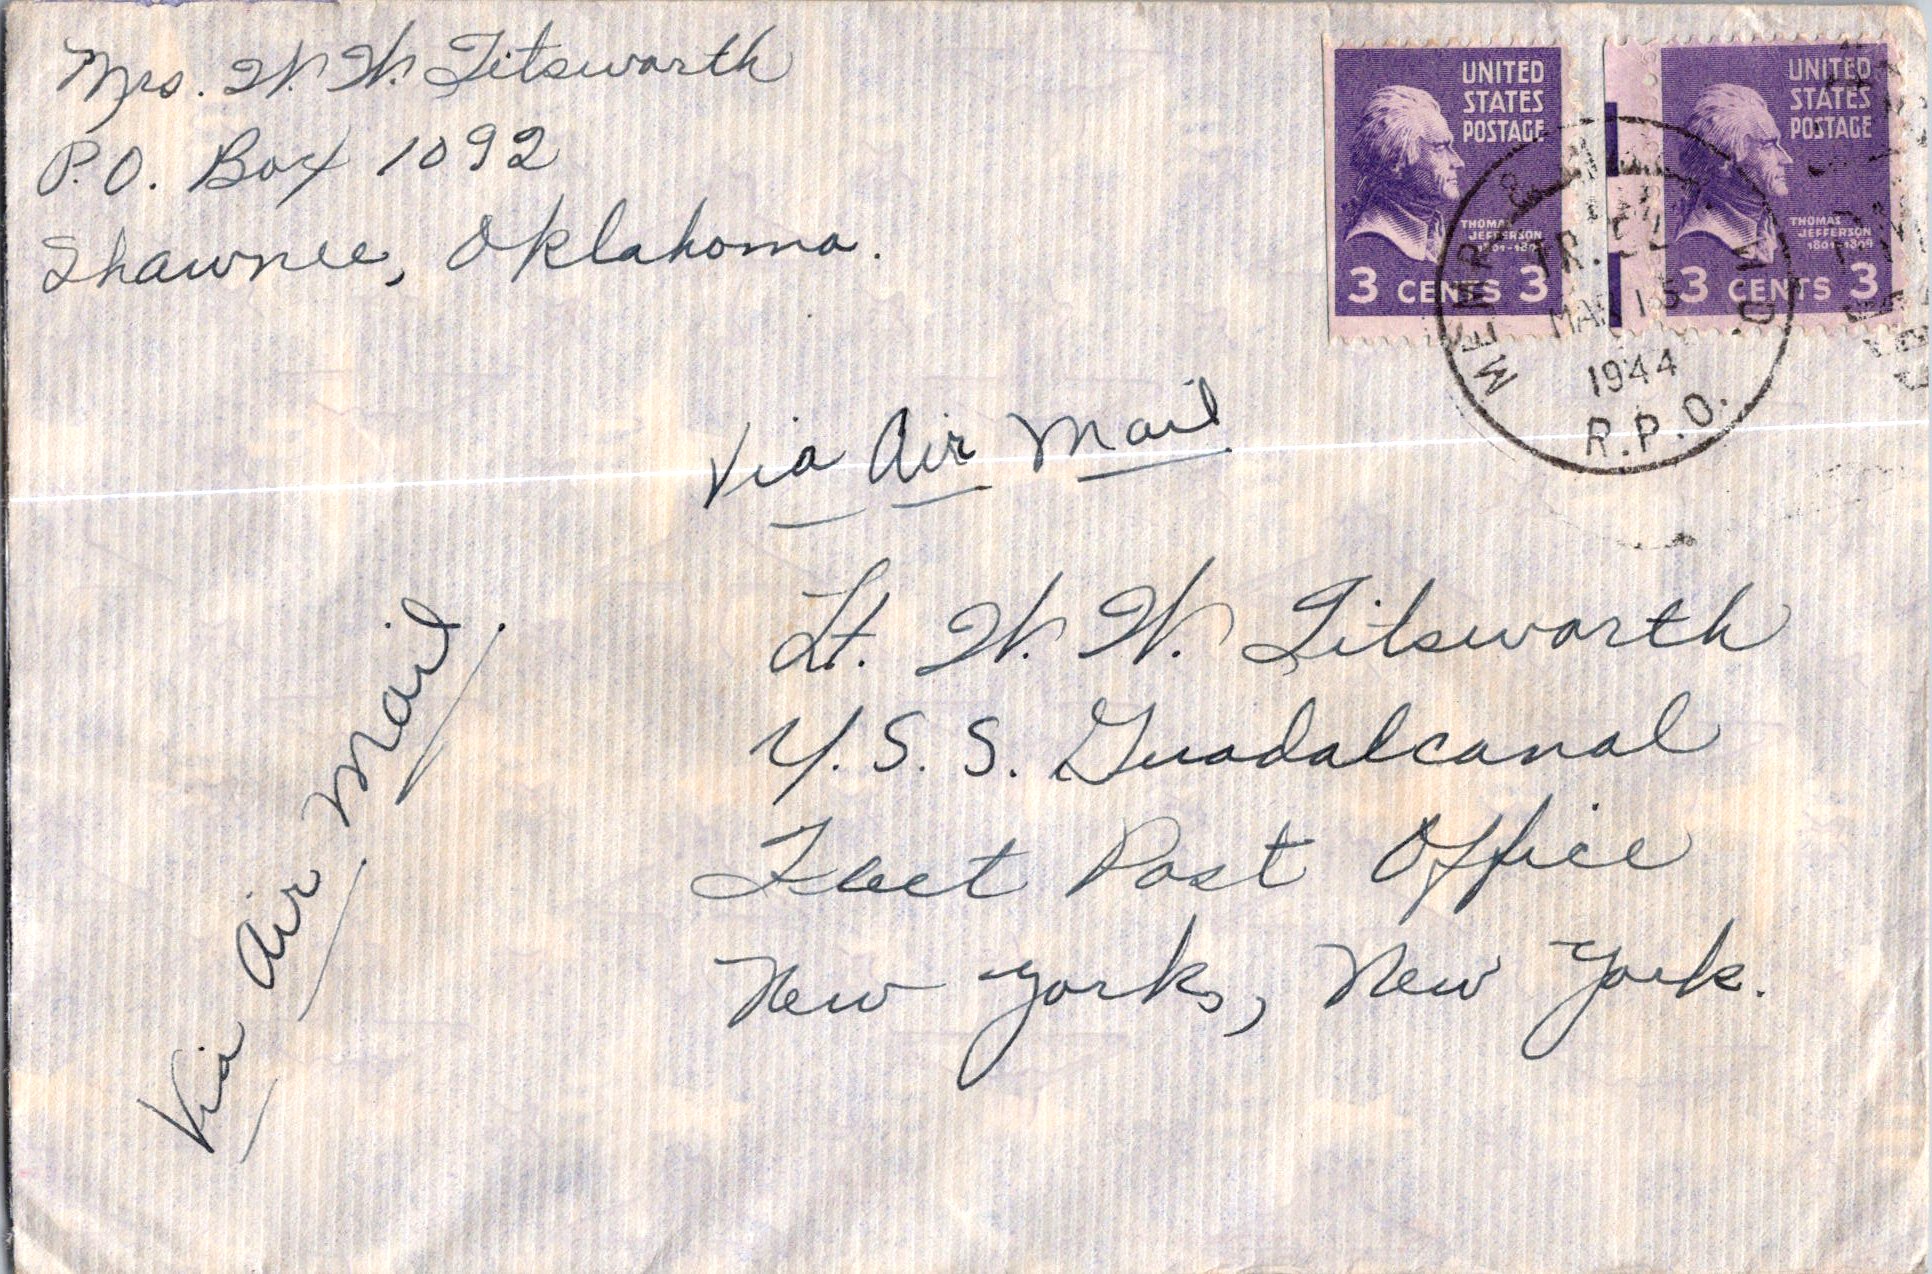 Mrs. W. W. Titsworth
P.O. Box 1092
Shawnee, Oklahoma.
UNITED
STATES
POSTAGE
THOMAS
JEFFERSON
3 CENTS 3
UNITED
STATES
POSTAGE
THOMAS
JEFFERSON
1801-1809
3 CENTS 3
MEMP. &
TR.
MAR 15
1944
R.P.O.
Via Air Mail
Lt. W. W. Titsworth
U.S.S. Guadalcanal
Fleet Post Office
New York, New York.
Via Air Mail.